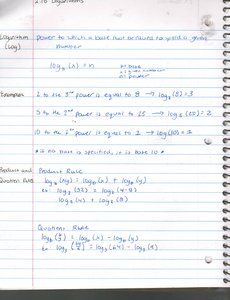 2.10 Logarithms
Logarithm power to which a base must be raised to yield a given
(Log) number
log_b(x) = n
b = base
x = given number
n = power
Examples 2 to the 3rd power is equal to 8 → log₂(8) = 3
5 to the 2nd power is equal to 25 → log₅(25) = 2
10 to the 1st power is equal to → log(10) = 1
* if no base is specified, it is base 10 *
Product and Product Rule
Quotient Rules log_b(xy) = log_b(x) + log_b(y)
ex: log₂(32) = log₂(4·8)
log₂(4) + log₂(8)
Quotient Rule
log_b(x/y) = log_b(x) - log_b(y)
ex: = log₂(64) - log₂(4)